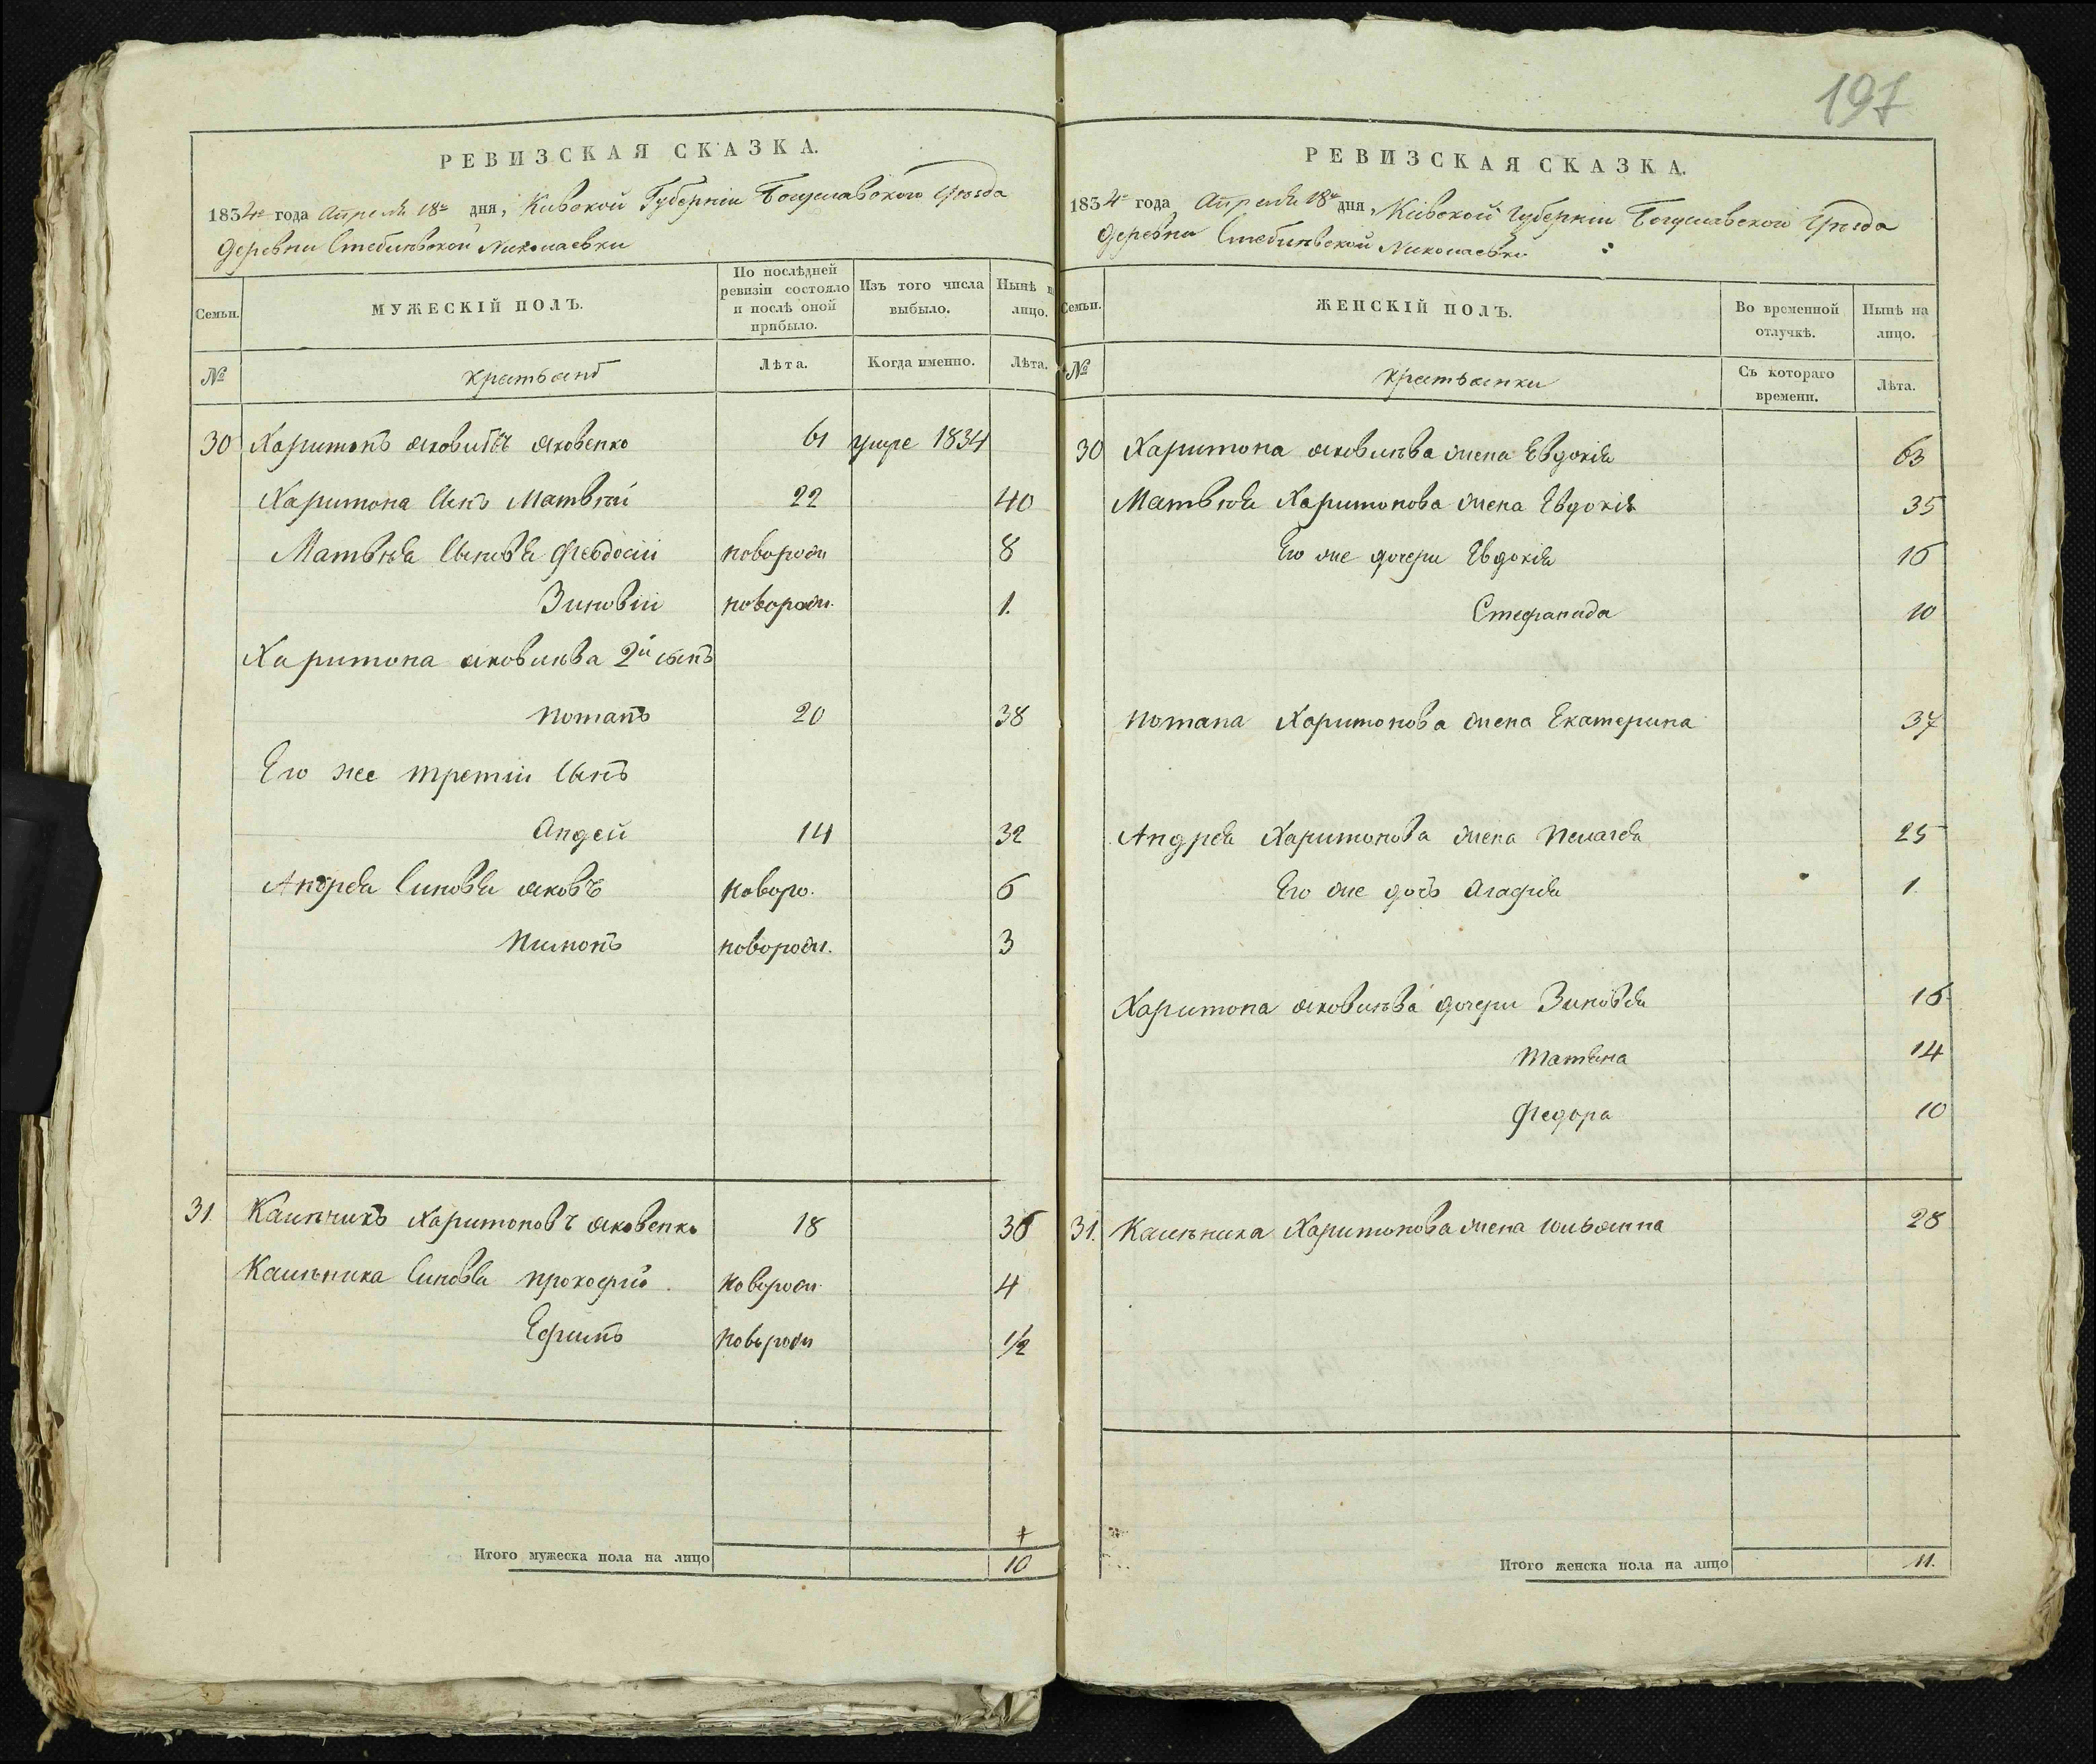 197
РЕВИЗСКАЯ СКАЗКА.
1834го года Апреля 18го дня, Киевской Губернiи Богуславского Уѣзда
Деревни Стебливской Николаевки
Семьи.
МУЖЕСКIЙ ПОЛЪ.
По послѣдней ревизiи состояло и послѣ оной прибыло.
Изъ того числа выбыло.
Нынѣ на лицо.
№
Крестьянъ
Лѣта.
Когда именно.
Лѣта.
30 Харитонъ Яковлевъ Яковенко 61 умре 1834
Харитона Сынъ Матвѣй 22 40
Матвѣя Сыновья Феодосiй новорожд 8
Зиновiй новорожд. 1.
Харитона Яковлева 2й сынъ
Потапъ 20 38
Его же третiй Сынъ
Андей 14 32
Андрея Синовья Яковъ новоро. 6
Пимонъ новорожд. 3
31. Калѣникъ Харитоновъ Яковенко 18 36
Калѣника Синовья Прокофiй новорожд 4
Ефимъ новорожд 1/2
Итого мужеска пола на лицо 10
РЕВИЗСКАЯ СКАЗКА.
1834го года Апреля 18го дня, Кiевской Губернiи Богуславского Уѣзда
Деревни Стебливской Николаевки
Семьи.
ЖЕНСКIЙ ПОЛЪ.
Во временной отлучкѣ.
Нынѣ на лицо.
№
Крестьянки
Съ котораго времени.
Лѣта.
30 Харитона Яковлева жена Евдокiя 63
Матвѣя Харитонова жена Евдокiя 35
Его же дочери Евдокiя 16
Стефанида 10
Потапа Харитонова жена Екатерина 37
Андрея Харитонова жена Пелагея 25
Его же дочь Агафiя 1
Харитона Яковлева дочери Зиновья 16
Татьяна 14
Федора 10
31. Калѣника Харитонова жена Юльянна 28
Итого женска пола на лицо 11.